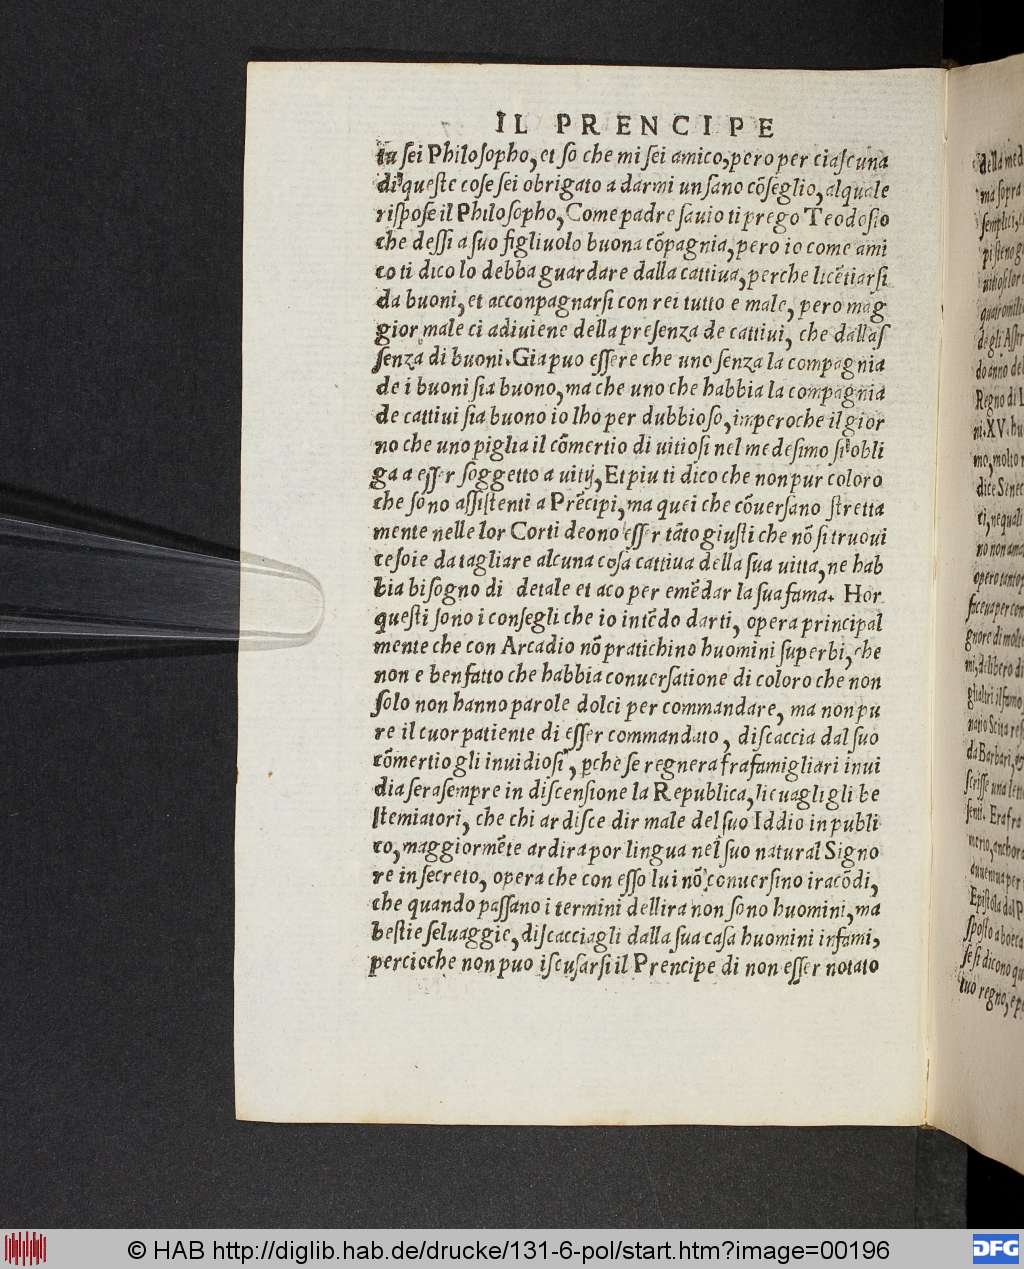 IL PRENCIPE
tu sei Philosopho, et so che mi sei amico, pero per ciascuna
di queste cose sei obrigato a darmi un sano cōseglio, alquale
rispose il Philosopho, Come padre savio ti prego Teodosio
che dessi a suo figliuolo buona cōpagnia, pero io come ami
co ti dico lo debba guardare dalla cattiva, perche licētiarsi
da buoni, et acconpagnarsi con rei tutto e male, pero mag
gior male ci adiuiene della presenza de cattivi, che dallas
senza di buoni. Gia puo essere che uno senza la compagnia
de i buoni sia buono, ma che uno che habbia la compagnia
de cattivi sia buono io lho per dubbioso, imperoche il gior
no che uno piglia il cōmertio di uitiosi nel medesimo si obli
ga a esser soggetto a uitij, Et piu ti dico che non pur coloro
che sono assistenti a Prēcipi, ma quei che cōuersano stretta
mente nelle lor Corti deono esser tāto giusti che nō si truovi
cesoie da tagliare alcuna cosa cattiva della sua uitta, ne hab
bia bisogno di detale et aco per emēdar la sua fama. Hor
questi sono i consegli che io intēdo darti, opera principal
mente che con Arcadio nō pratichino huomini superbi, che
non e ben fatto che habbia conuersatione di coloro che non
solo non hanno parole dolci per commandare, ma non pu
re il cuor patiente di esser commandato, discaccia dal suo
cōmertio gli inuidiosi, pchè se regnera fra famigliari inui
dia sera sempre in discensione la Republica, lieuagli gli be
stemiatori, che chi ardisce dir male del suo Iddio in publi
co, maggiormēte ardira por lingua nel suo natural Signo
re in secreto, opera che con esso lui nō conuersino iracōdi,
che quando passano i termini dellira non sono huomini, ma
bestie seluaggie, discacciagli dalla sua casa huomini infami,
percioche non puo iscusarsi il Prencipe di non esser notato
della med
ma sopra
semplici, e
degli Astr
do anno del
Regno di L
ni. XV. hu
mo, molto n
dice Sinec
ti, ne quali
no non ama
opero tanto
faceua per con
gnore di molto
ni, delibero di
gli altri il fa mo
natio Scita re
da Barbari,
scrisse una lette
senti. Era fra
merio, anchora
aueniua per
Epistola del P
sposto a boeca
se si dicono qu
tuo regno, e p
© HAB http://diglib.hab.de/drucke/131-6-pol/start.htm?image=00196
DFG